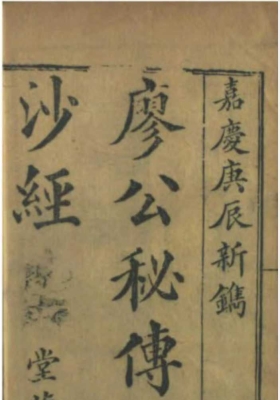 嘉慶庚辰新鐫
廖公秘傳
沙經
堂